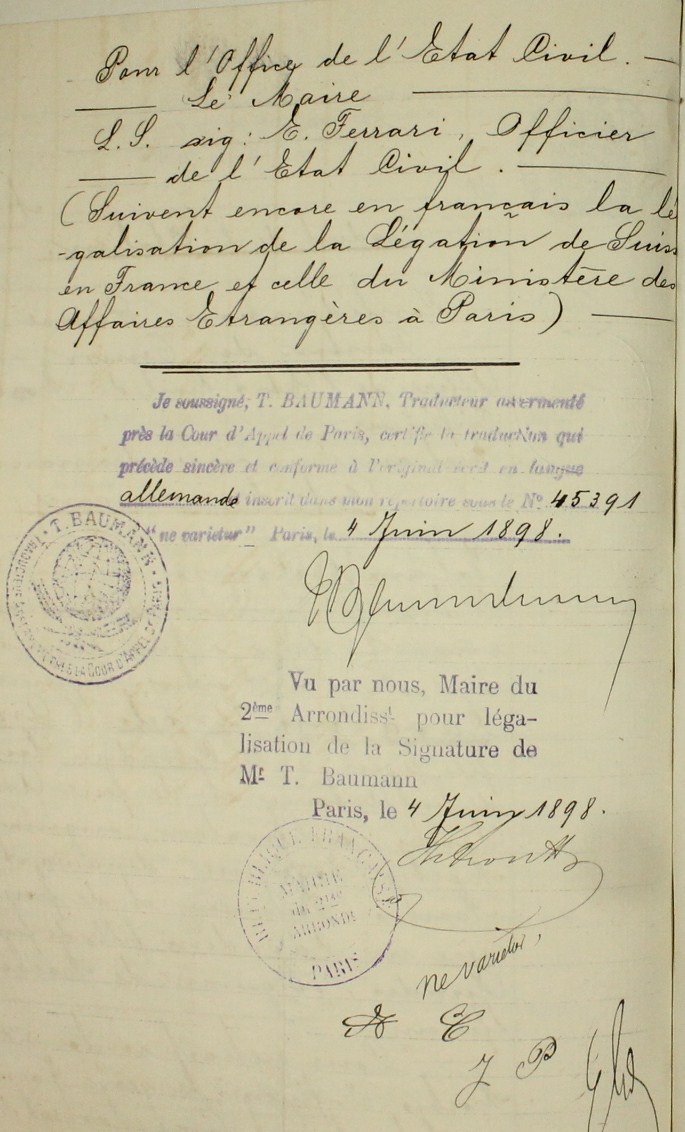 Pour l'Office de l'Etat Civil. —
— Le Maire —
L. S. sig: E. Ferrari, Officier
— de l'Etat Civil. —
(Suivent encore en français la lé
-galisation de la Légation de Suis
en France et celle du Ministère des
Affaires Etrangères à Paris) —
Je soussigné, T. BAUMANN, Traducteur assermenté
près la Cour d'Appel de Paris, certifie la traduction qui
précède sincère et conforme à l'original écrit en langue
allemande et inscrit dans mon répertoire sous le Nº 45391
"ne varietur" Paris, le 4 Juin 1898.
T. BAUMANN
PRÈS LA COUR D'APPEL DE PARIS
Vu par nous, Maire du
2ème Arrondisst pour léga-
lisation de la Signature de
Mr T. Baumann
Paris, le 4 Juin 1898.
RÉPUBLIQUE FRANÇAISE
MAIRIE
du 2me
ARRONDt
PARIS
ne varietur,
A E
J P